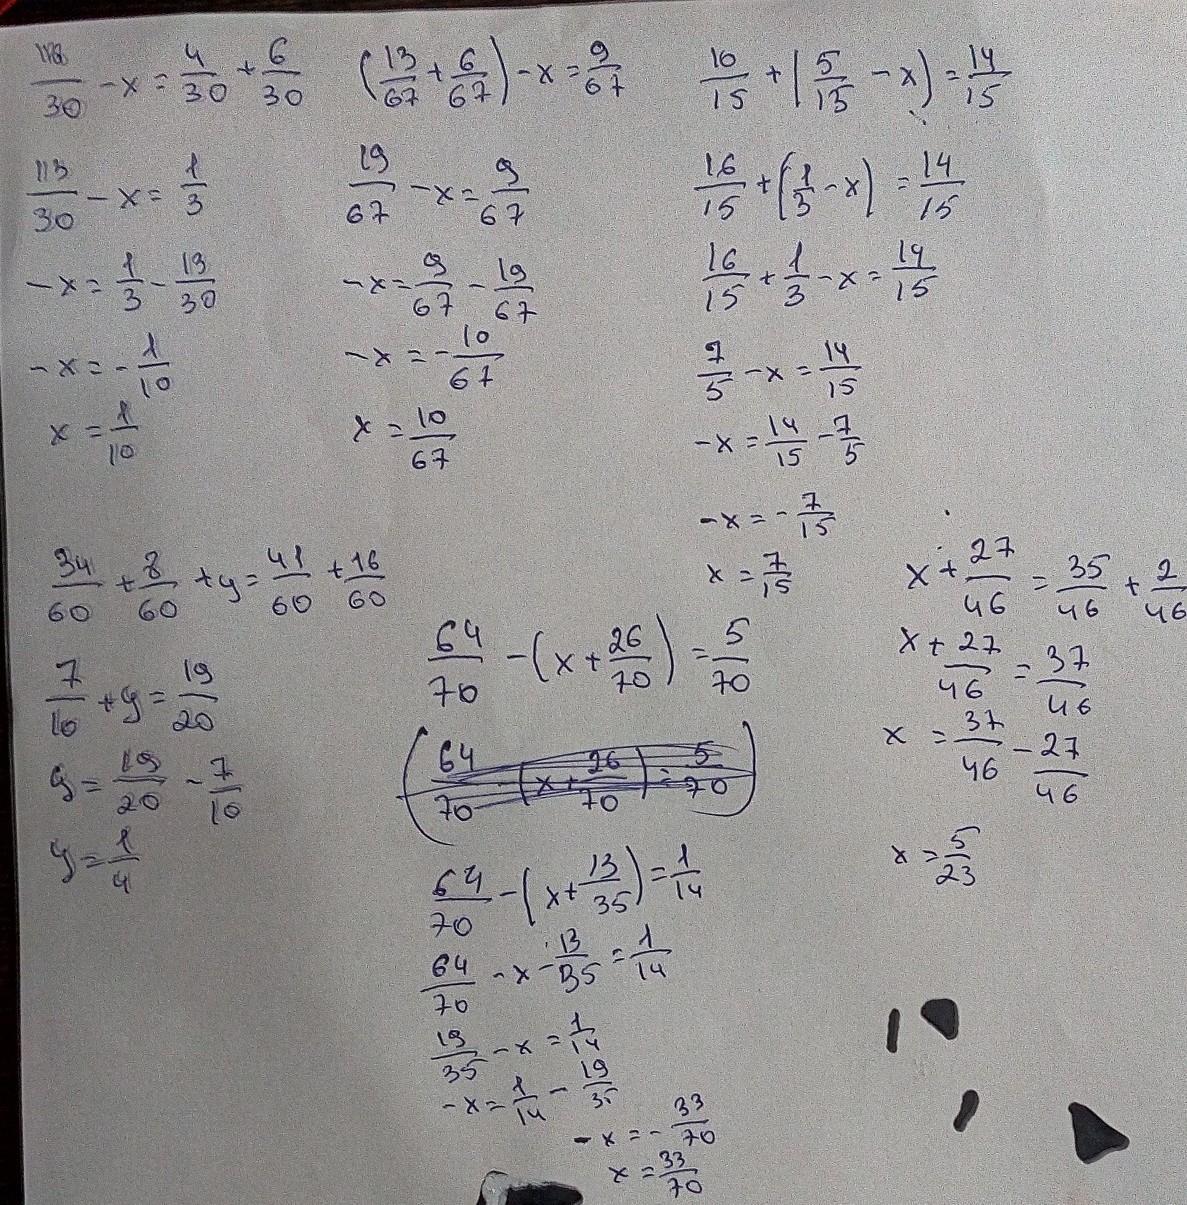 113/30 - x = 4/30 + 6/30
113/30 - x = 1/3
-x = 1/3 - 13/30
-x = -1/10
x = 1/10
(13/67 + 6/67) - x = 9/67
19/67 - x = 9/67
-x = 9/67 - 19/67
-x = -10/67
x = 10/67
16/15 + (5/15 - x) = 14/15
16/15 + (1/3 - x) = 14/15
16/15 + 1/3 - x = 14/15
7/5 - x = 14/15
-x = 14/15 - 7/5
-x = -7/15
x = 7/15
34/60 + 8/60 + y = 41/60 + 16/60
7/10 + y = 19/20
y = 19/20 - 7/10
y = 1/4
64/70 - (x + 26/70) = 5/70
(64/70 - (x + 26/70) = 5/70)
64/70 - (x + 13/35) = 1/14
64/70 - x - 13/35 = 1/14
19/35 - x = 1/14
-x = 1/14 - 19/35
-x = -33/70
x = 33/70
x + 27/46 = 35/46 + 2/46
x + 27/46 = 37/46
x = 37/46 - 27/46
x = 5/23